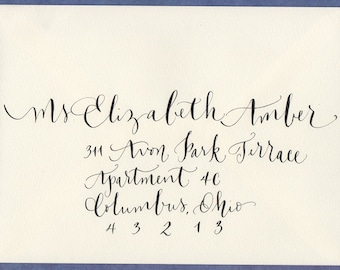 Ms Elizabeth Amber
311 Avon Park Terrace
Apartment 4C
Columbus, Ohio
4 3 2 1 3